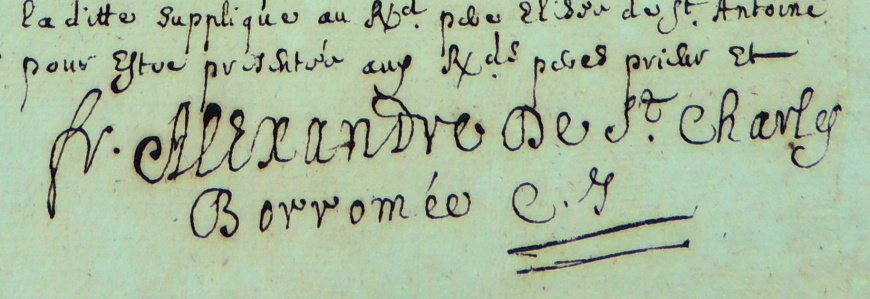 la ditte supplique au Rd. pere Elisée de St. Antoine
pour Estre presentée aux Rds peres prieur Et
fr. Alexandre De St. Charles
Borromée C.